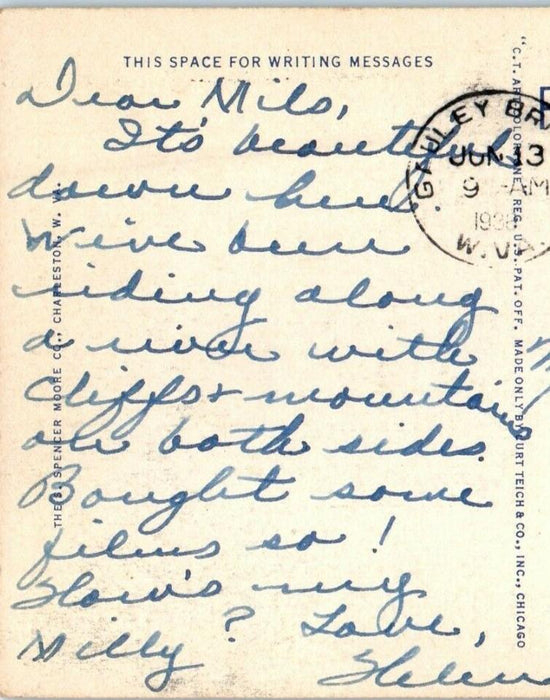 THIS SPACE FOR WRITING MESSAGES
Dear Milo,
It's beautiful
down here.
We've been
riding along
a river with
cliffs & mountains
on both sides.
Bought some
films so!
How's my
Milly? Love,
Helen
GAULEY BR
JUN 13
9 -AM
W. VA.
THE S. SPENCER MOORE CO., CHARLESTON, W. VA.
"C.T. ART-COLORTONE" REG. U.S. PAT. OFF. MADE ONLY BY CURT TEICH & CO., INC., CHICAGO